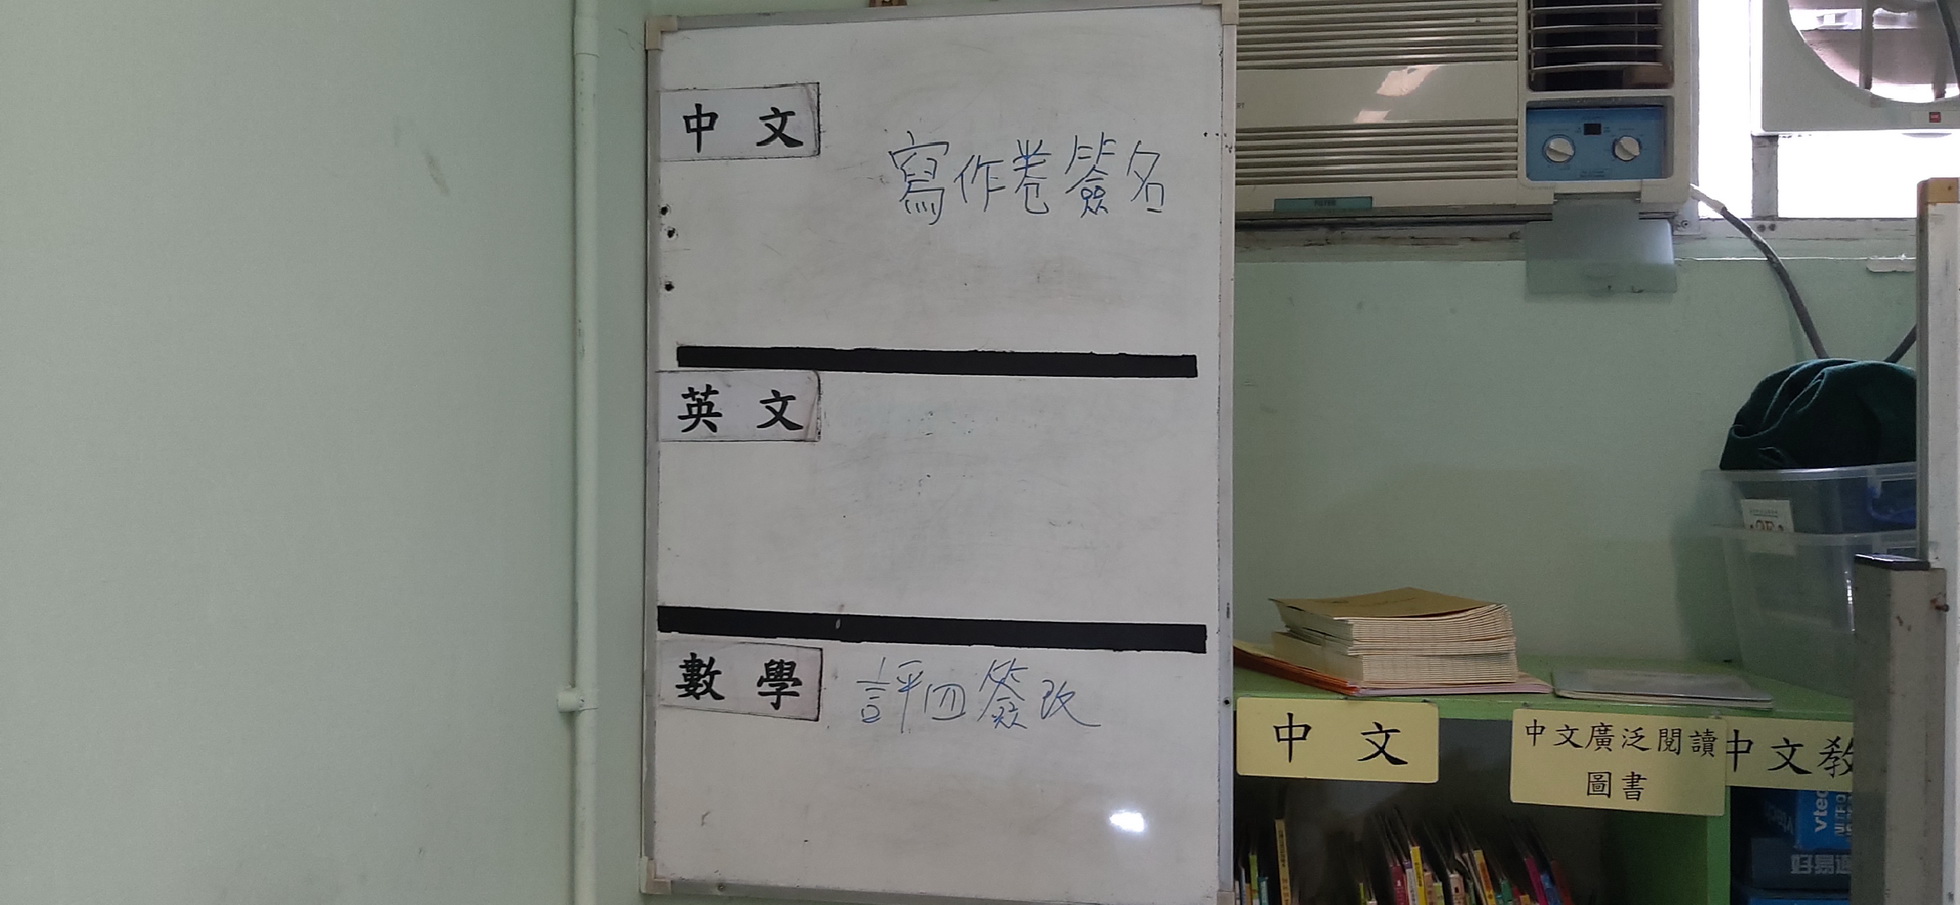 中文
寫作卷簽名
英文
數學
評四簽改
中文
中文廣泛閱讀
圖書
中文教
vtec
好易通